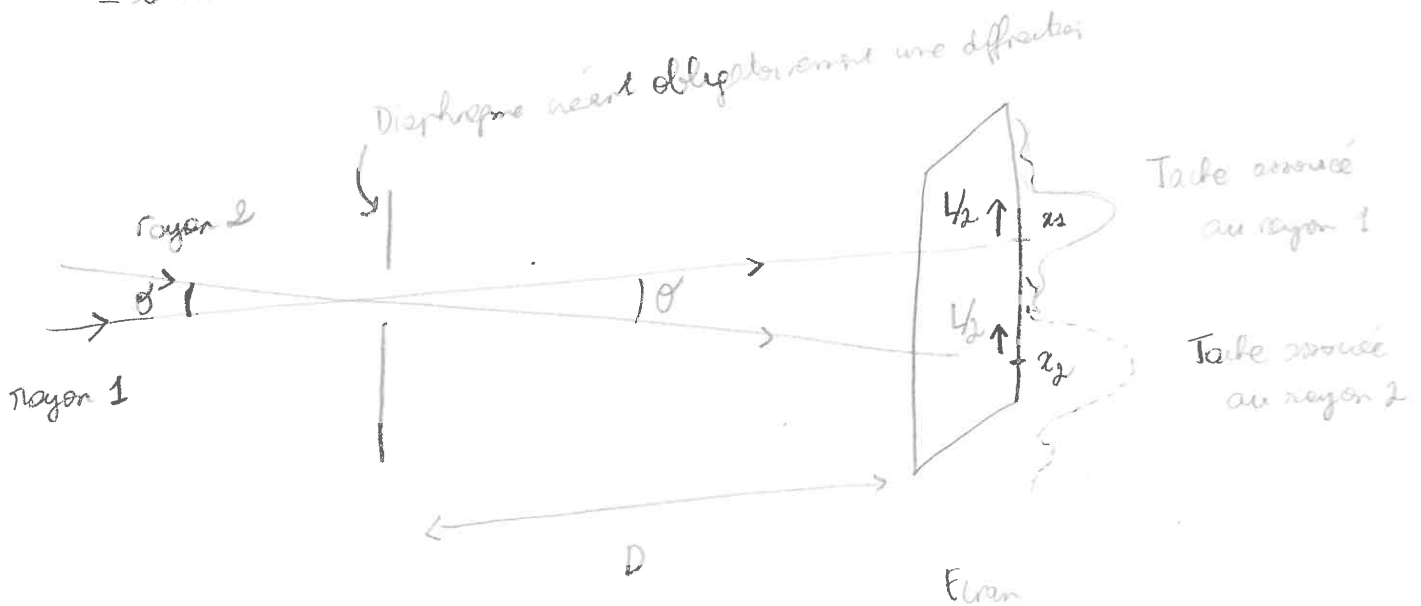 Diaphragme créant obligatoirement une diffraction
rayon 2
θ
rayon 1
θ
L/2
x1
L/2
x2
Tache associée
au rayon 1
Tache associée
au rayon 2
D
Ecran